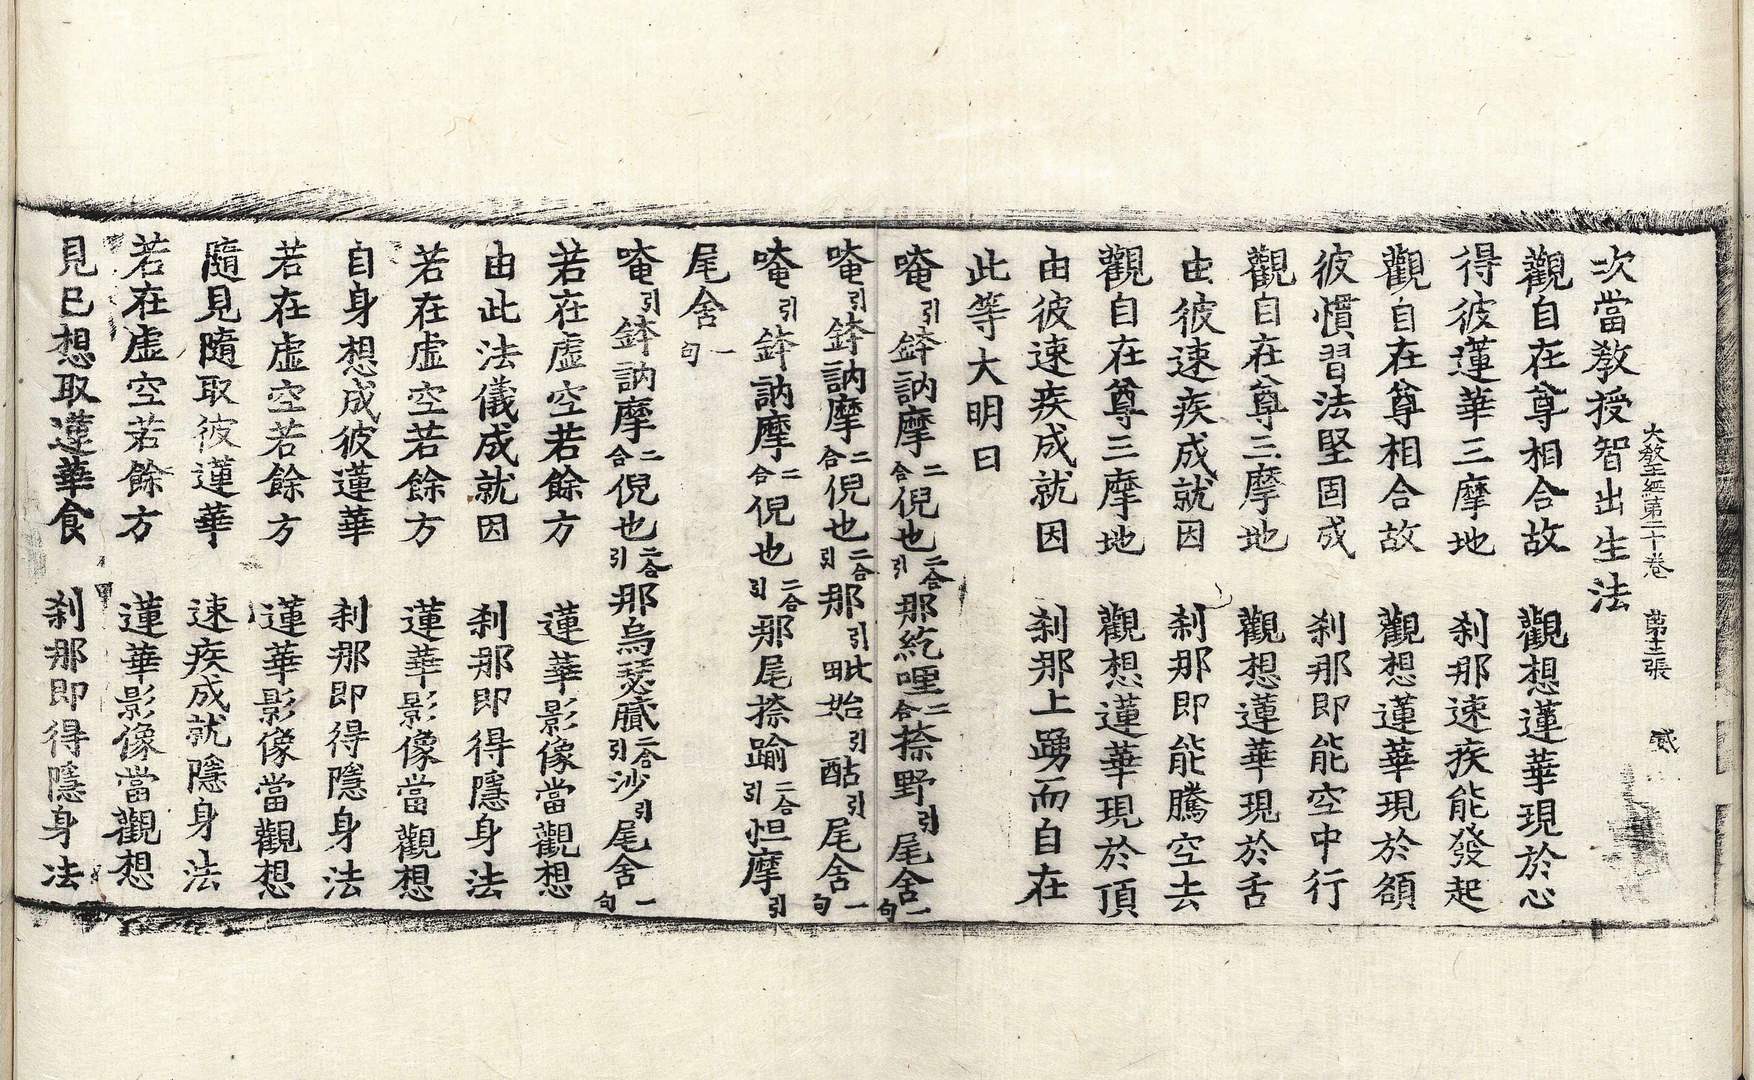 大教王經第二十卷　第十二張　貳
次當教授智出生法
觀自在尊相合故　觀想蓮華現於心
得彼蓮華三摩地　刹那速疾能發起
觀自在尊相合故　觀想蓮華現於額
彼慣習法堅固成　刹那即能空中行
觀自在尊三摩地　觀想蓮華現於舌
由彼速疾成就因　刹那即能騰空去
觀自在尊三摩地　觀想蓮華現於頂
由彼速疾成就因　刹那上踴而自在
此等大明曰
唵引鉢訥摩二合倪也二合引那紇哩二合捺野引尾舍一句
唵引鉢訥摩二合倪也二合引那引毗始引酤引尾舍一句
唵引鉢訥摩二合倪也二合引那尾捺踰二合引怛摩引
尾舍一句
唵引鉢訥摩二合倪也二合引那烏瑟膩二合引沙引尾舍一句
若在虛空若餘方　蓮華影像當觀想
由此法儀成就因　刹那即得隱身法
若在虛空若餘方　蓮華影像當觀想
自身想成彼蓮華　刹那即得隱身法
若在虛空若餘方　蓮華影像當觀想
隨見隨取彼蓮華　速疾成就隱身法
若在虛空若餘方　蓮華影像當觀想
見已想取蓮華食　刹那即得隱身法